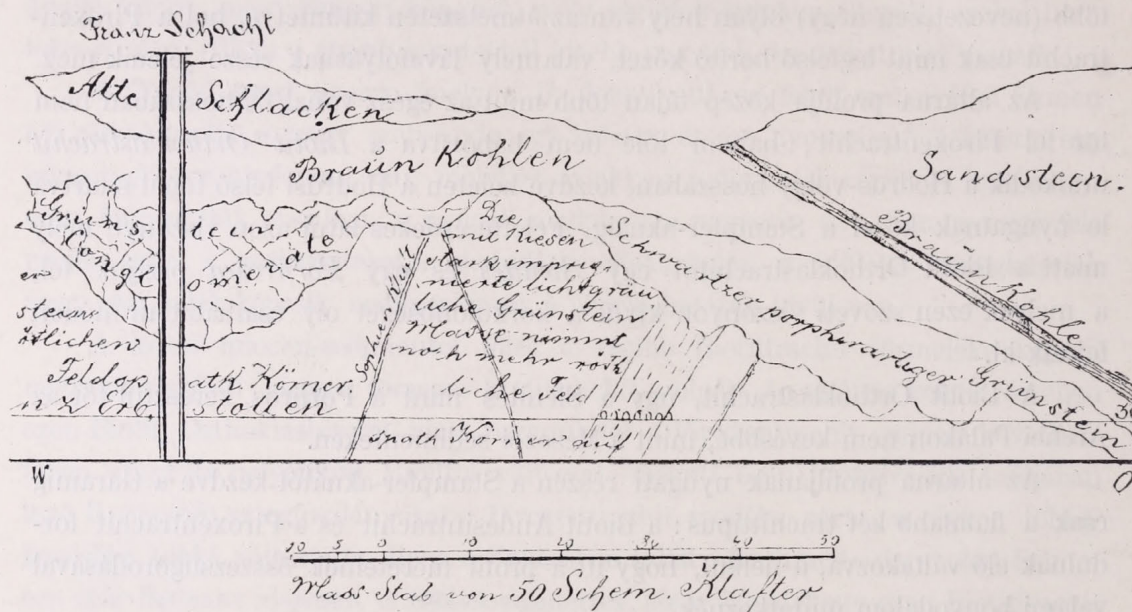 Franz Schacht
Alte Schlacken
Braun Kohlen
Sandstein.
Braunkohle
Grünsteinsto
Conglomerate
Die
mit Kiesen
stark impräg
nierte lichtgrau
liche Grünstein
Masse nimmt
noch mehr röt
liche Feld
spath Körner auf
Schwarzer porphyrartiger Grünstein
en
stein
ötlichen
Feldspath. Körner.
nz Erb stollen
W
O
10 5 0 10 20 30 40 50
Mass-Stab von 50 Schem. Klafter